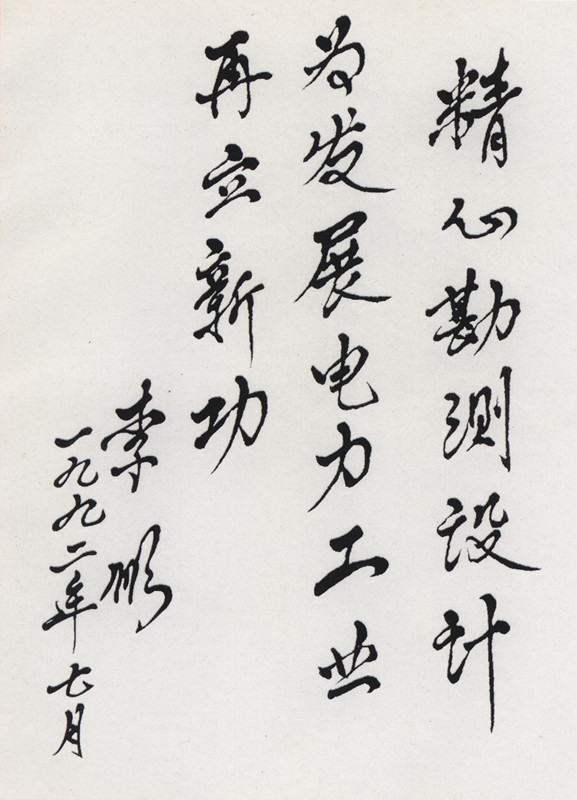 精心勘测设计
为发展电力工业
再立新功
李鹏
一九九二年七月